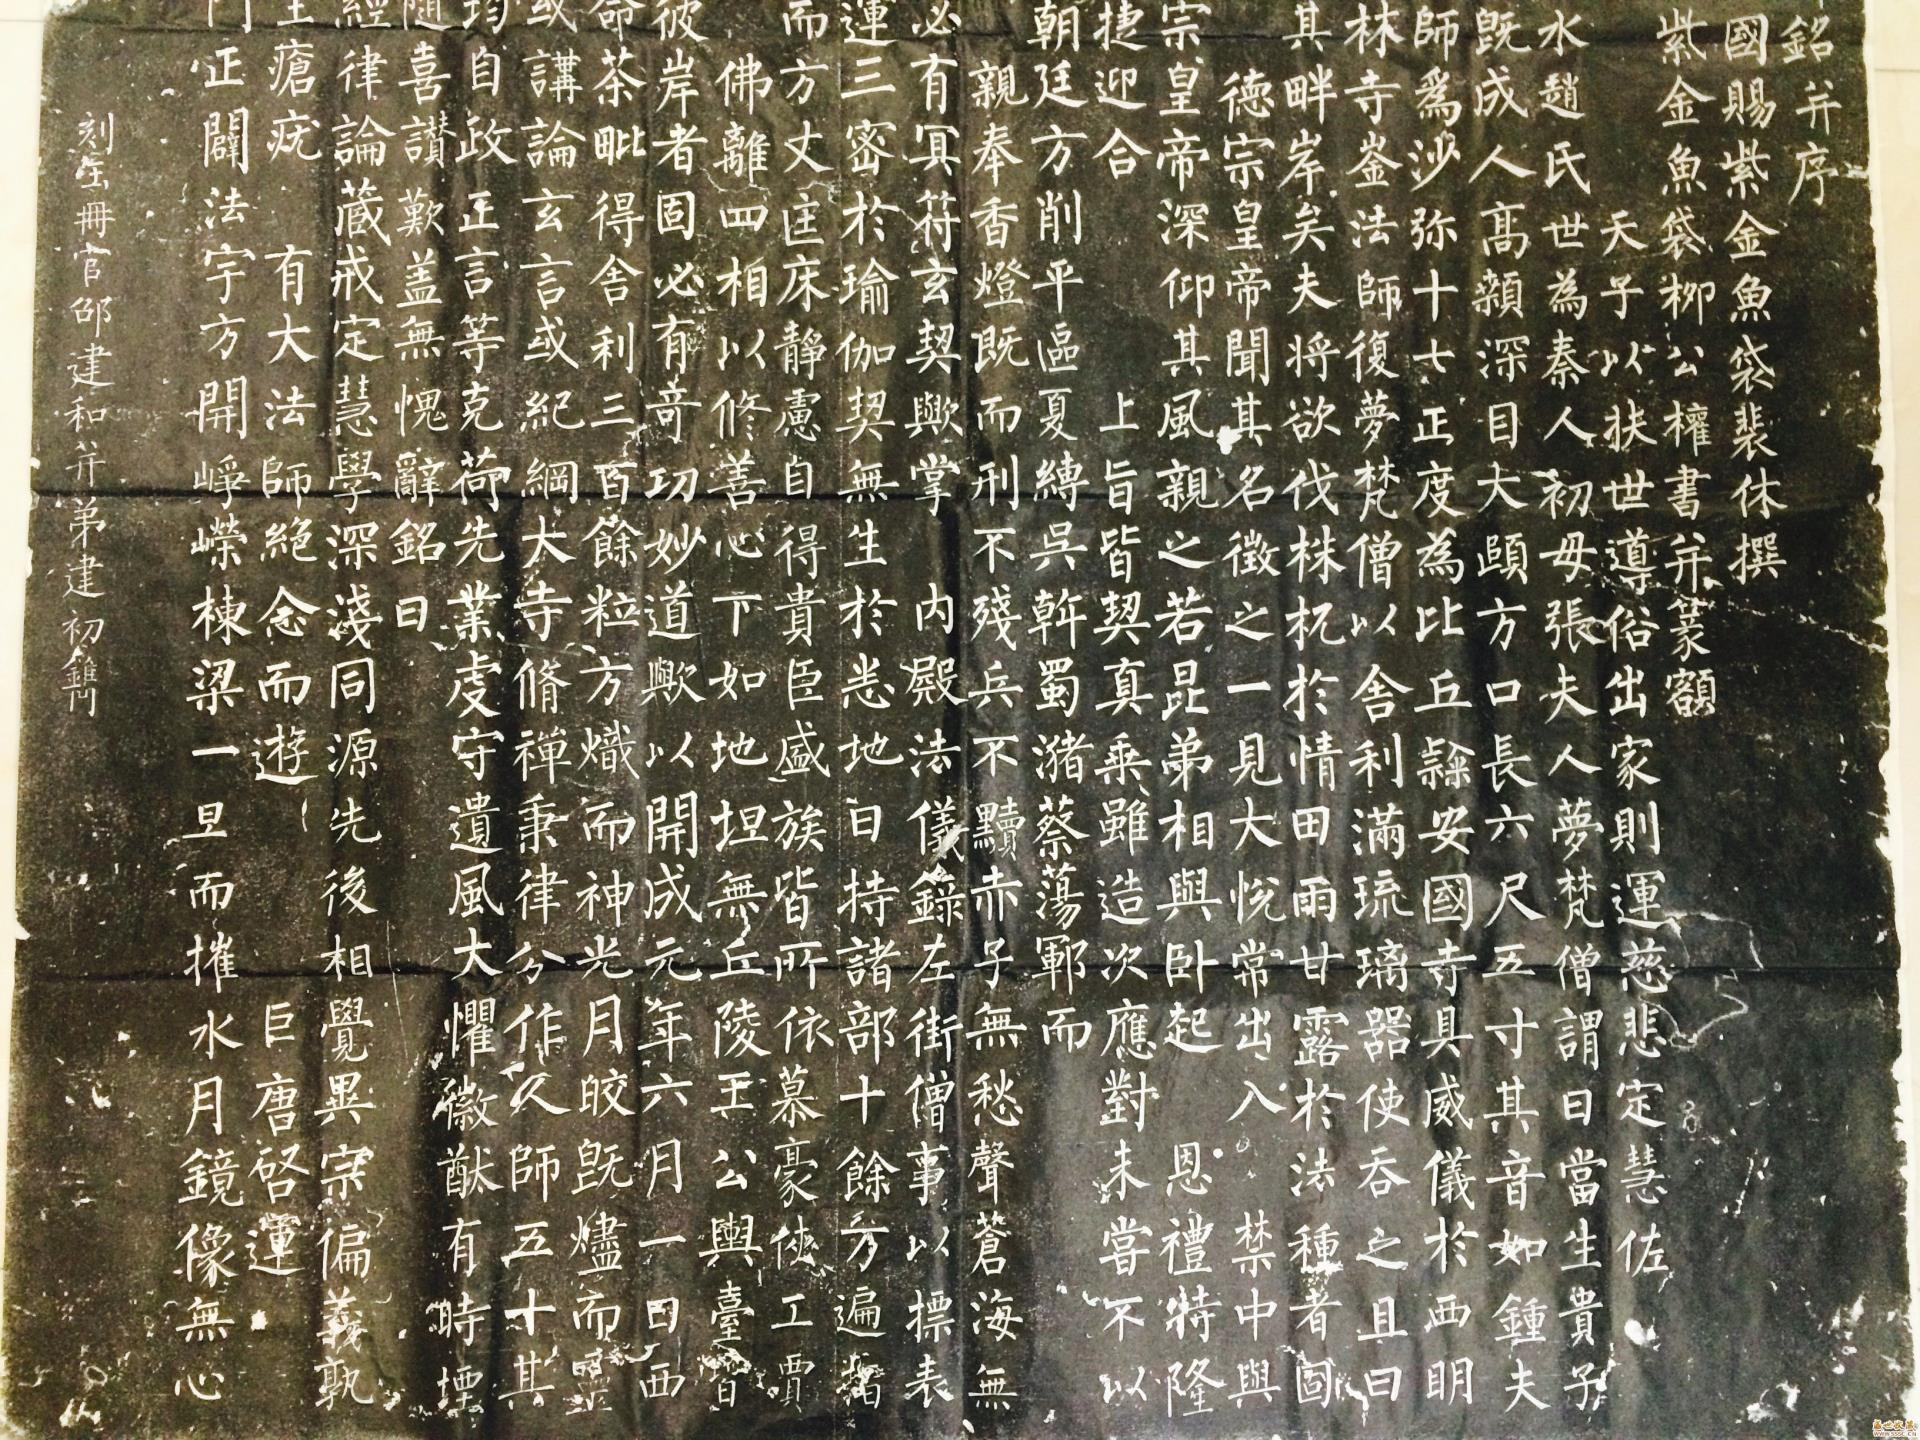 銘并序
國賜紫金魚袋裴休撰
紫金魚袋柳公權書并篆額
天子以扶世導俗出家則運慈悲定慧佐
水趙氏世為秦人初母張夫人夢梵僧謂曰當生貴子
既成人高顙深目大頤方口長六尺五寸其音如鍾夫
師為沙弥十七正度為比丘隸安國寺具威儀於西明
林寺崟法師復夢梵僧以舍利滿琉璃器使吞之且曰
其畔岸矣夫將欲伐株杌於情田雨甘露於法種者固
德宗皇帝聞其名徵之一見大悅常出入 禁中與
宗皇帝深仰其風親之若昆弟相與卧起 恩禮特隆
捷迎合 上旨皆契真乗雖造次應對未嘗不以
朝廷方削平區夏縛吳斡蜀瀦蔡蕩鄆而
親奉香燈既而刑不殘兵不黷赤子無愁聲蒼海無
必有冥符玄契歟掌 內殿法儀錄左街僧事以摽表
運三密於瑜伽契無生於悉地日持諸部十餘万遍指
而方丈匡床靜慮自得貴臣盛族皆所依慕豪俠工賈
佛離四相以修善心下如地坦無丘陵王公輿臺皆
彼岸者固必有奇功妙道歟以開成元年六月一日西
命荼毗得舍利三百餘粒方熾而神光月皎既燼而靈
或講論玄言或紀綱大寺脩禪秉律分作人師五十其
均自政正言等克荷先業虔守遺風大懼徽猷有時堙
隨喜讚歎盖無愧辭銘曰
經律論藏戒定慧學深淺同源先後相覺異宗偏義孰
生瘡疣 有大法師絕念而遊 巨唐啓運
門正闢法宇方開崢嶸棟梁一旦而摧水月鏡像無心
刻玉冊官邵建和并弟建初鐫
盛世收藏
WWW.SSSC.CN